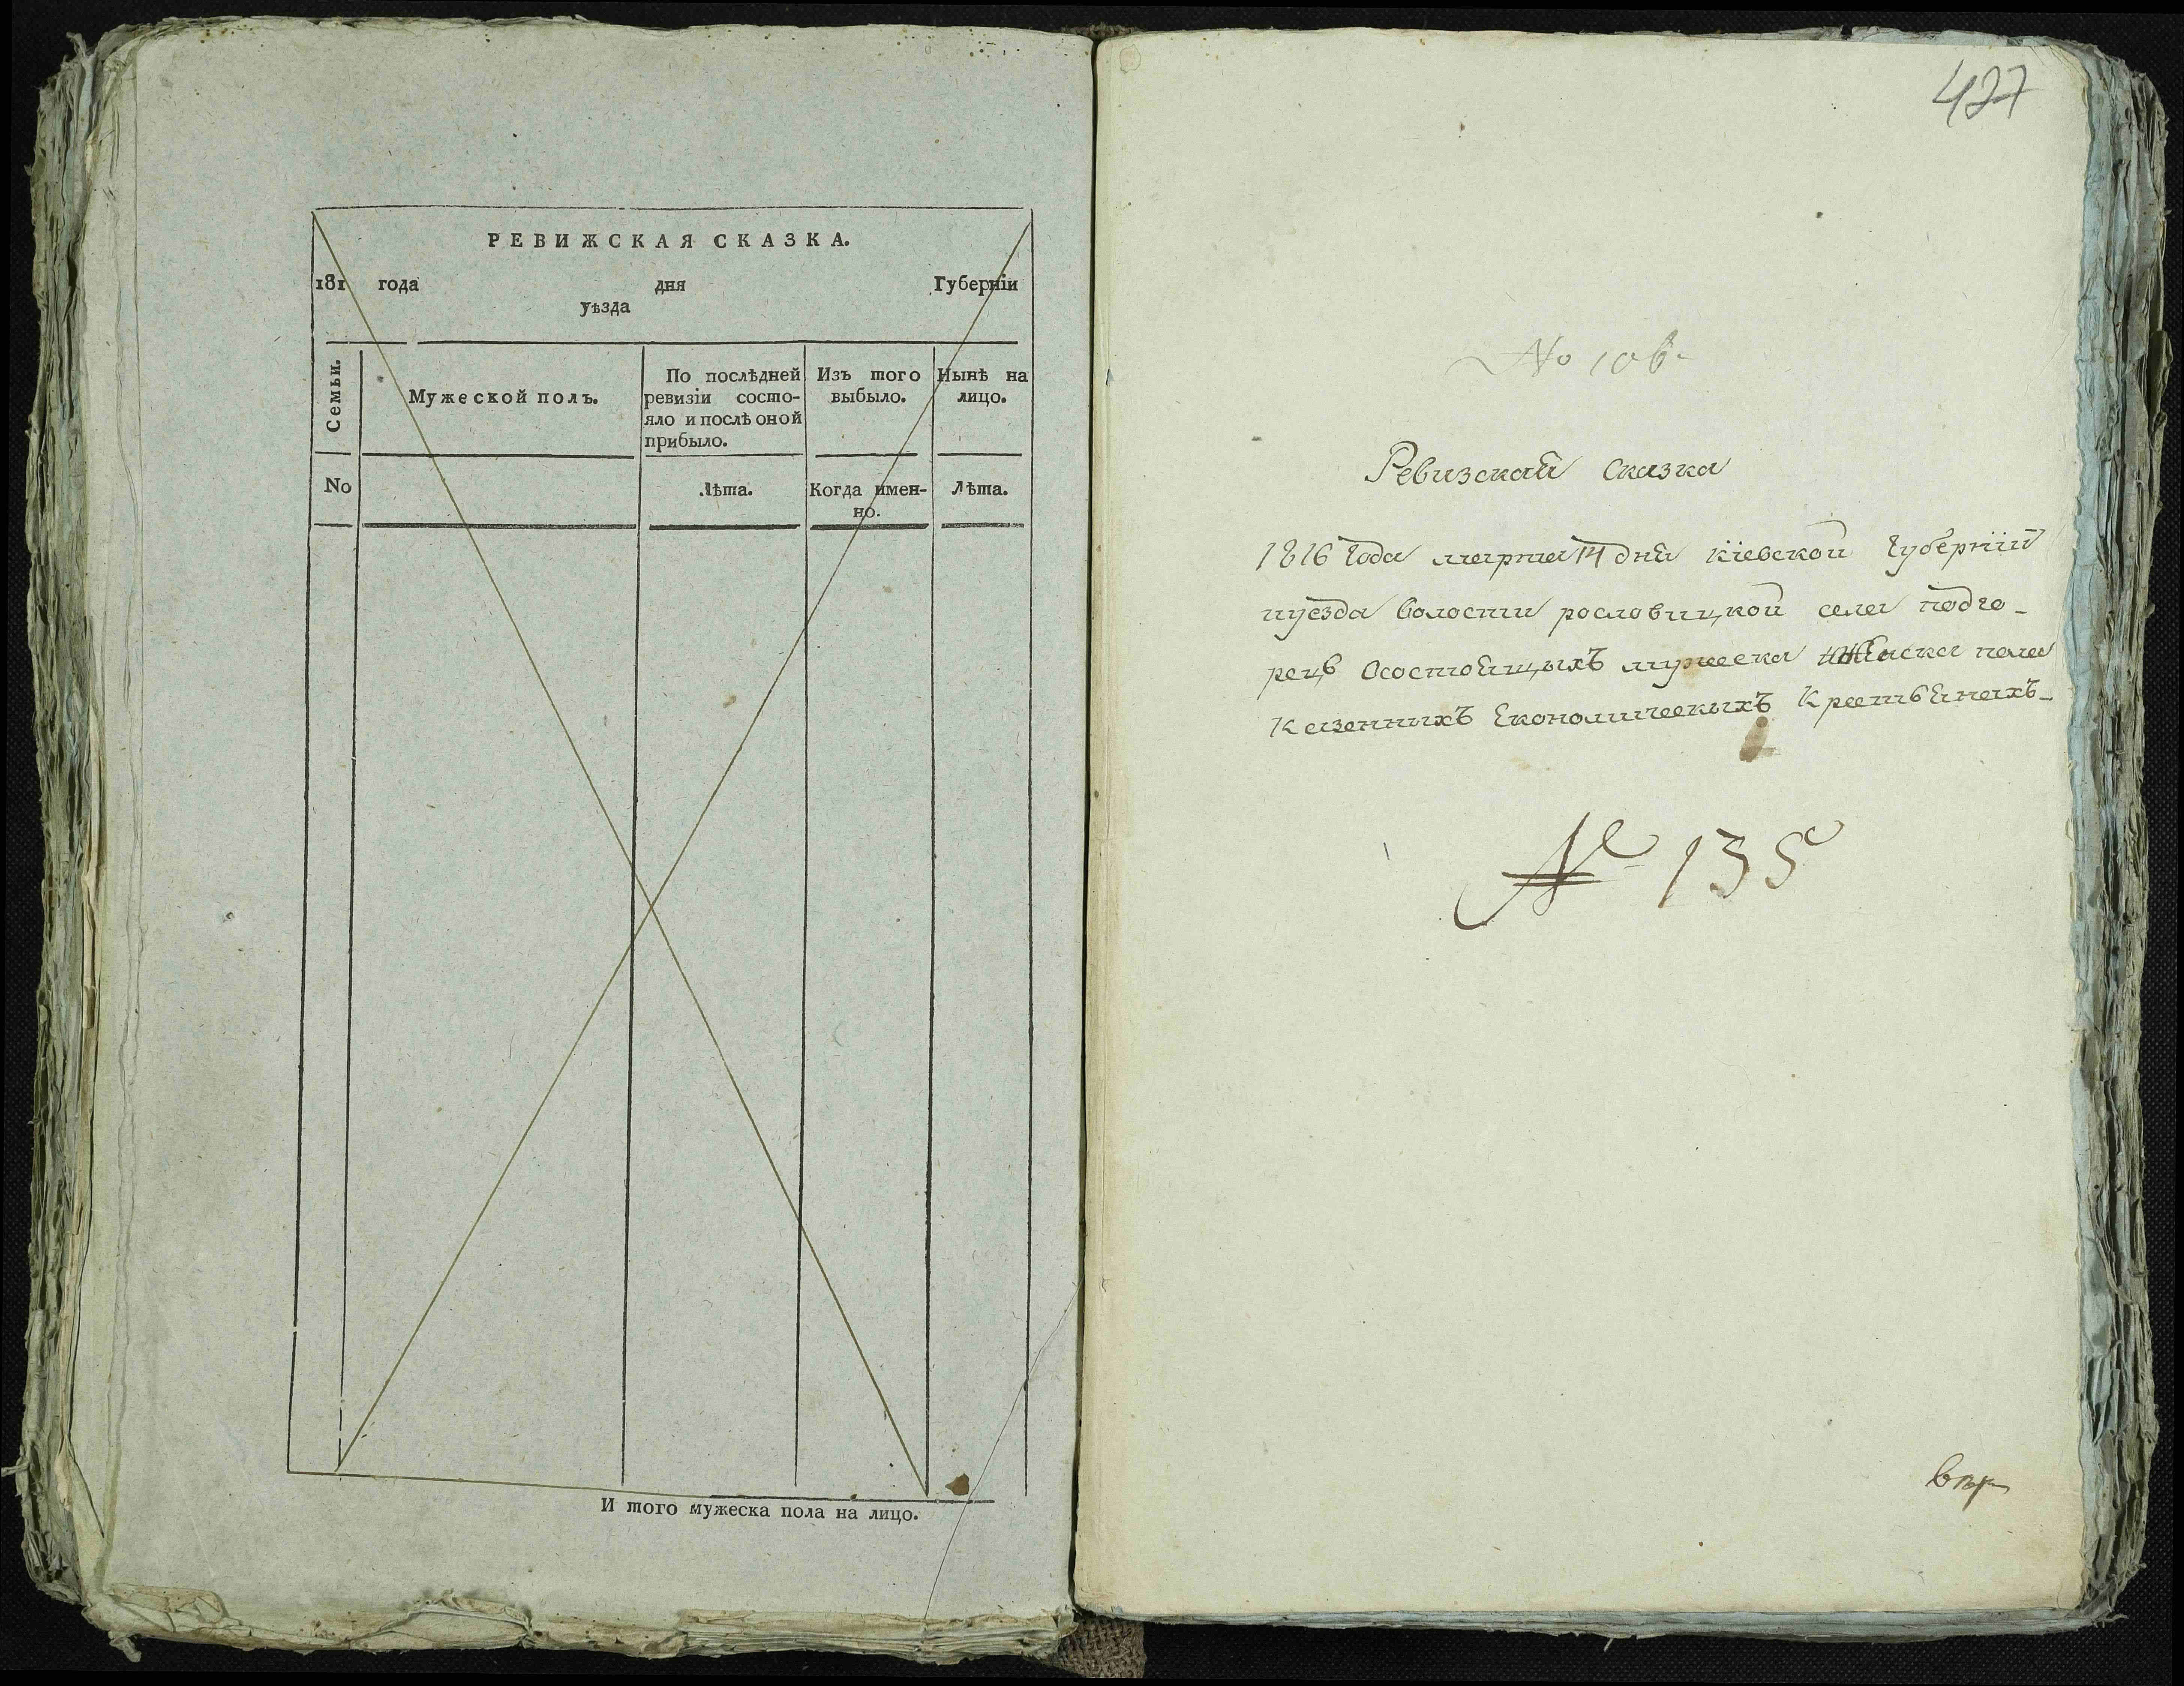 РЕВИЖСКАЯ СКАЗКА.
181 года дня Губерніи
уѣзда
Семьи.
Мужеской полъ.
По послѣдней ревизіи состо-
яло и послѣ оной
прибыло.
Изъ того
выбыло.
Нынѣ на
лицо.
No
Лѣта.
Когда имен-
но.
Лѣта.
И того мужеска пола на лицо.
427
No 106
Ревизская Сказка
1816 года марта 14 дня Кіевской губерніи
иуезда волости рословицкой села подго-
рецъ Осостоящихъ мужеска иженска пола
Казенныхъ Економическихъ Крестьянахъ
№ 135